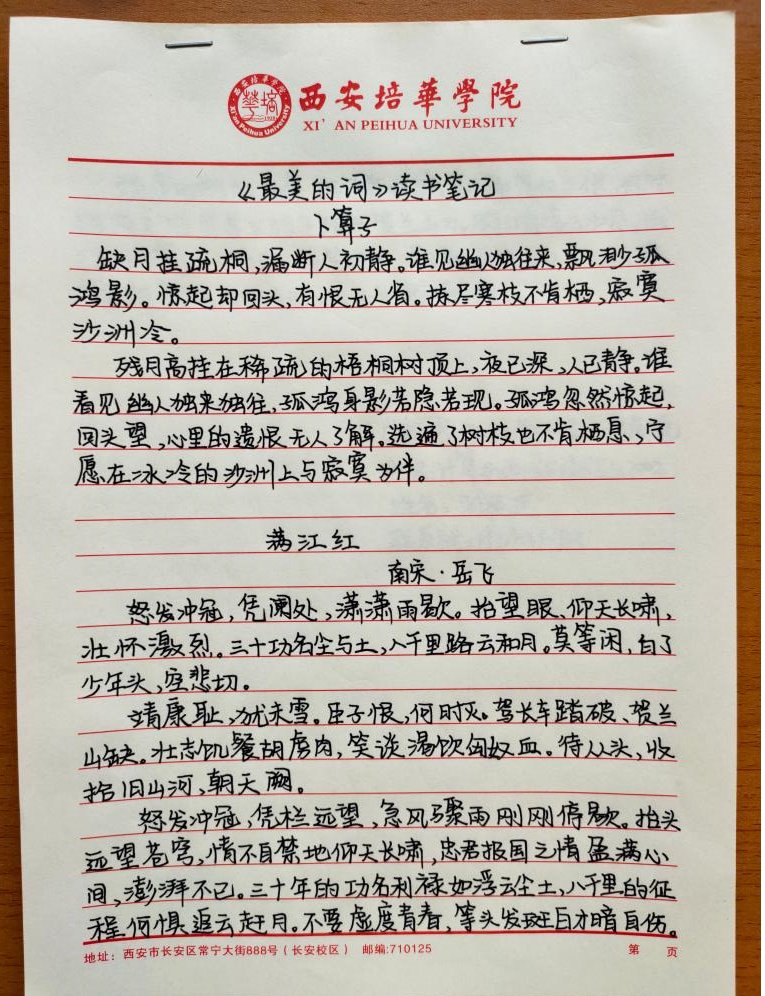 西安培華學院
XI' AN PEIHUA UNIVERSITY
《最美的词》读书笔记
卜算子
缺月挂疏桐,漏断人初静。谁见幽人独往来,飘渺孤
鸿影。惊起却回头,有恨无人省。拣尽寒枝不肯栖,寂寞
沙洲冷。
残月高挂在稀疏的梧桐树顶上,夜已深,人已静。谁
看见幽人独来独往,孤鸿身影若隐若现。孤鸿忽然惊起,
回头望,心里的遗恨无人了解。选遍了树枝也不肯栖息,宁
愿在冰冷的沙洲上与寂寞为伴。
满江红
南宋·岳飞
怒发冲冠,凭阑处,潇潇雨歇。抬望眼、仰天长啸,
壮怀激烈。三十功名尘与土,八千里路云和月。莫等闲,白了
少年头,空悲切。
靖康耻,犹未雪。臣子恨,何时灭。驾长车踏破、贺兰
山缺。壮志饥餐胡虏肉,笑谈渴饮匈奴血。待从头,收
拾旧山河,朝天阙。
怒发冲冠,凭栏远望,急风骤雨刚刚停歇。抬头
远望苍穹,情不自禁地仰天长啸,忠君报国之情盈满心
间,澎湃不已。三十年的功名利禄如浮云尘土,八千里的征
程何惧追云赶月。不要虚度青春,等头发斑白才暗自伤。
地址:西安市长安区常宁大街888号(长安校区) 邮编:710125 第 页